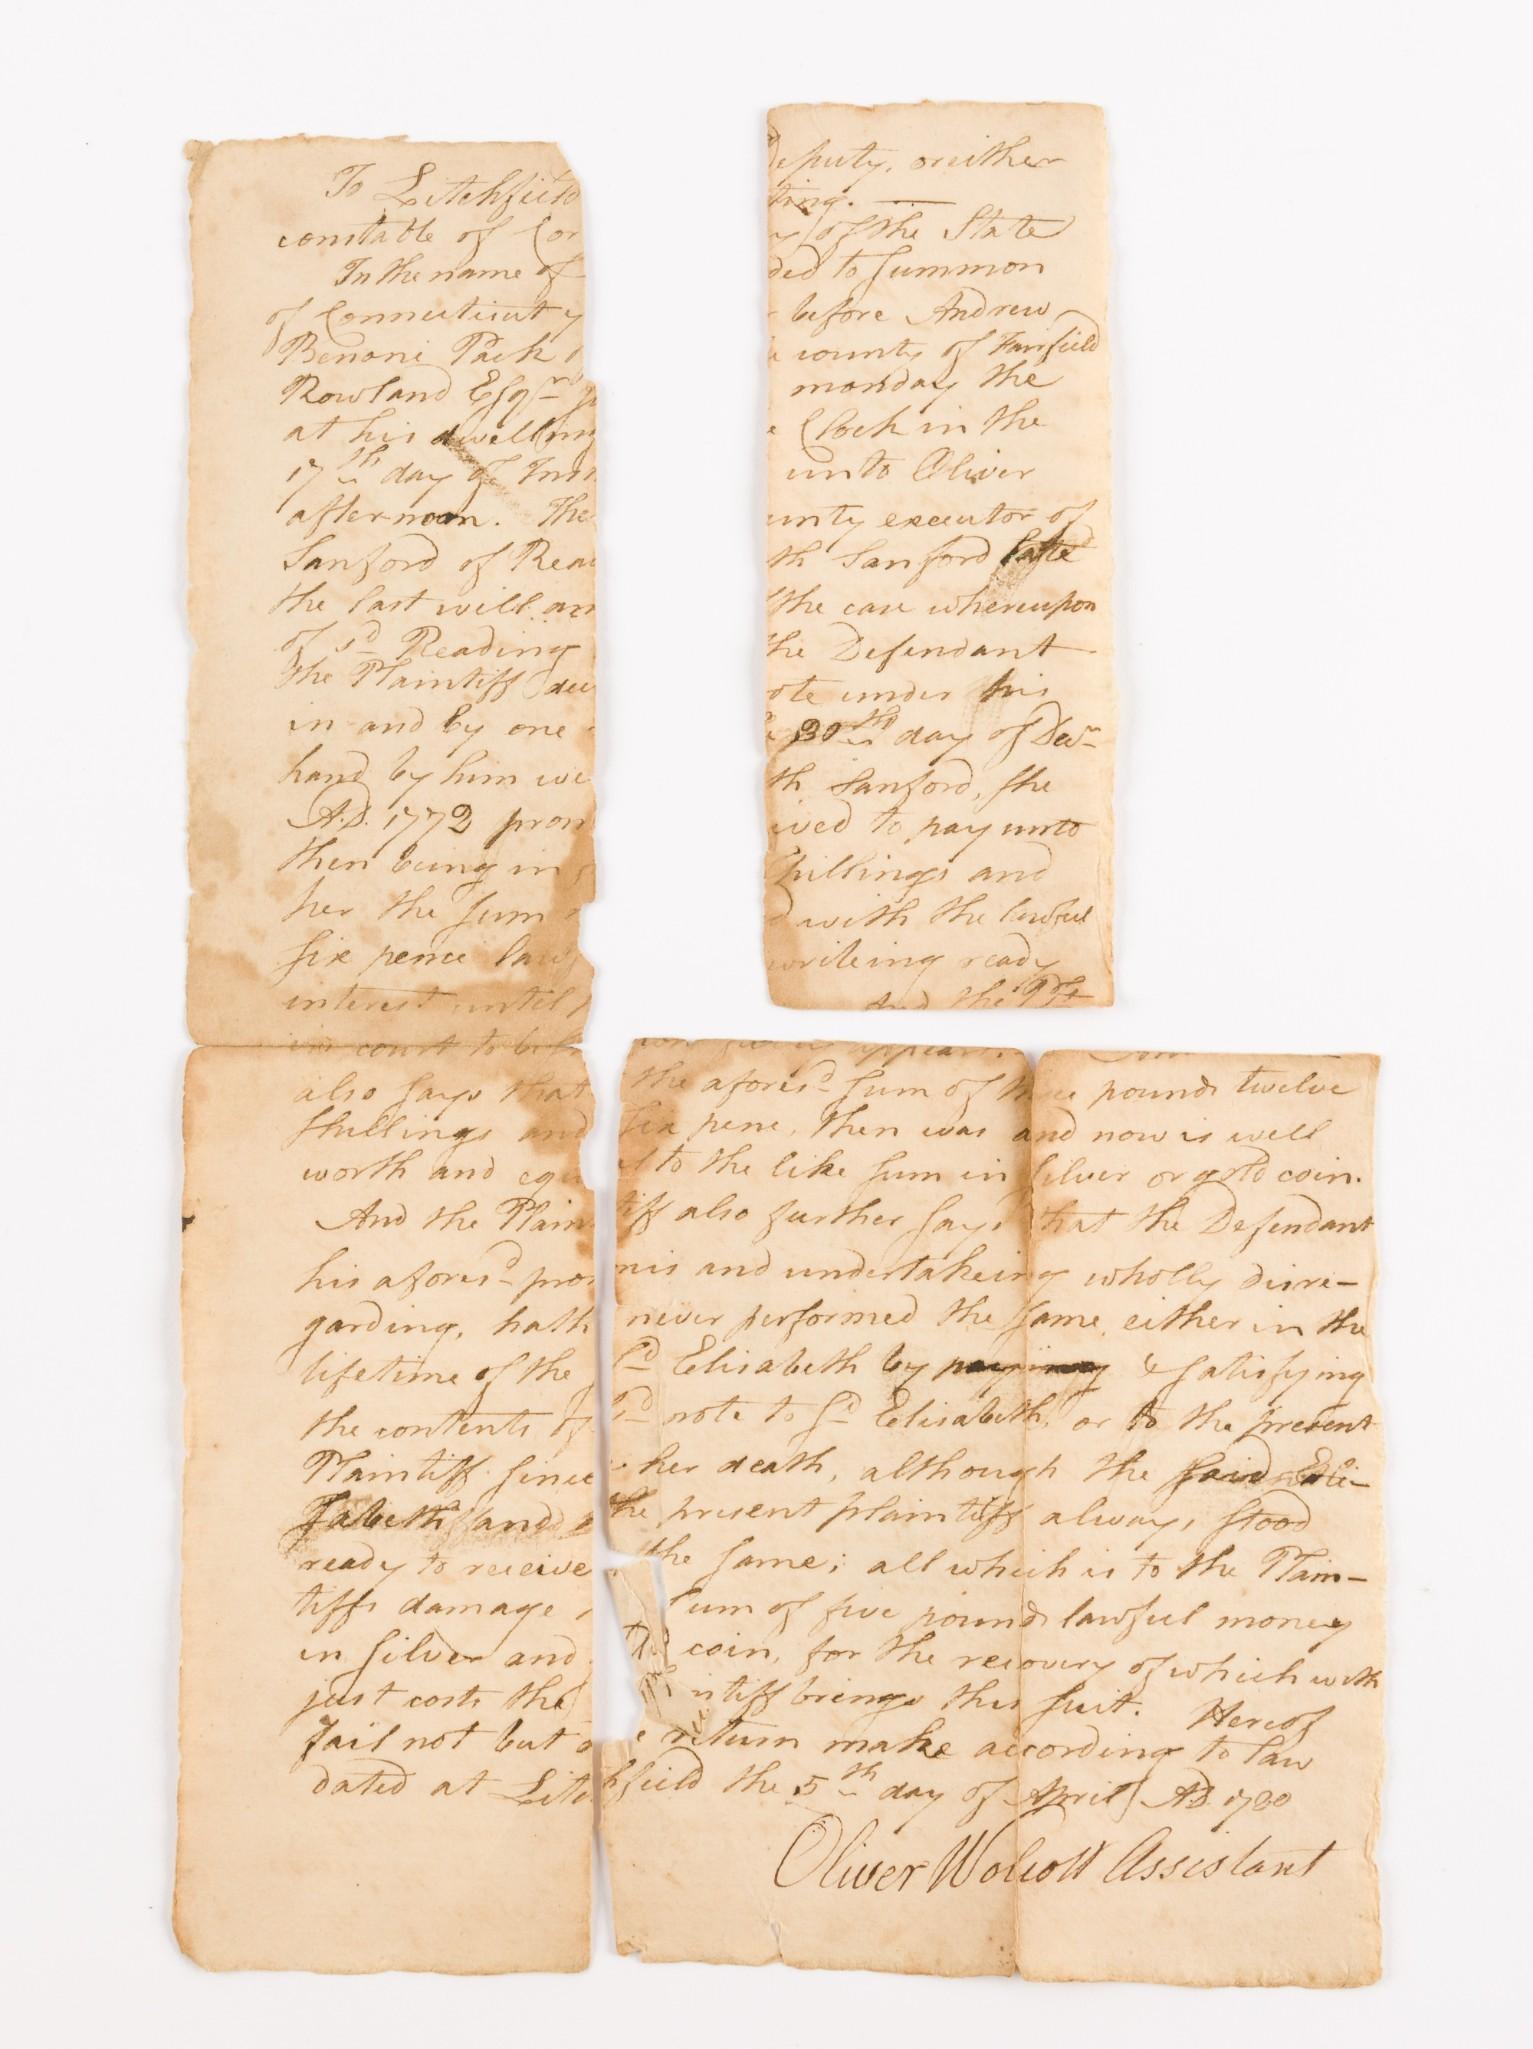 To Litchfield
constable of Cor
In the name of
of Connecticut y
Benoni Pack
Rowland Esqr
at his dwelling
17th day of Inst
afternoon. The
Sanford of Rea
the last will an
of sd Reading
The Plaintiff dec
in and by one
hand by him we
A.D. 1772 prom
then being in
her the sum
six pence law
interest until
court to be
eputy, or either
ting.
y of the State
ded to summon
before Andrew
county of Fairfield
monday the
Clock in the
unto Oliver
unty executor of
th Sanford late
the case whereupon
the Defendant
ote under his
30th day of Decr
th Sanford, she
ived to pay unto
hillings and
d with the lawful
writeing ready
And the Plt
appears.
also says that the aforesd sum of three pounds twelve
shillings and six pene, then was and now is well
worth and equ l to the like sum in silver or gold coin.
And the Plain tiff also further says that the Defendant
his aforesd pro mis and undertakeing wholly disre-
garding, hath never performed the same, either in the
lifetime of the sd Elisabeth by paying & satisfying
the contents of sd note to sd Elisabeth, or to the present
Plaintiff since her death, although the said Eli-
sabeth and the present plaintiff always stood
ready to receive the same; all which is to the Plain-
tiffs damage sum of five pounds lawful money
in silver and coin, for the recovery of which with
just costs the ntiff brings this suit. Hereof
fail not but return make according to law
dated at Litchfield the 5th day of April A.D. 1780
Oliver Wolcott Assistant